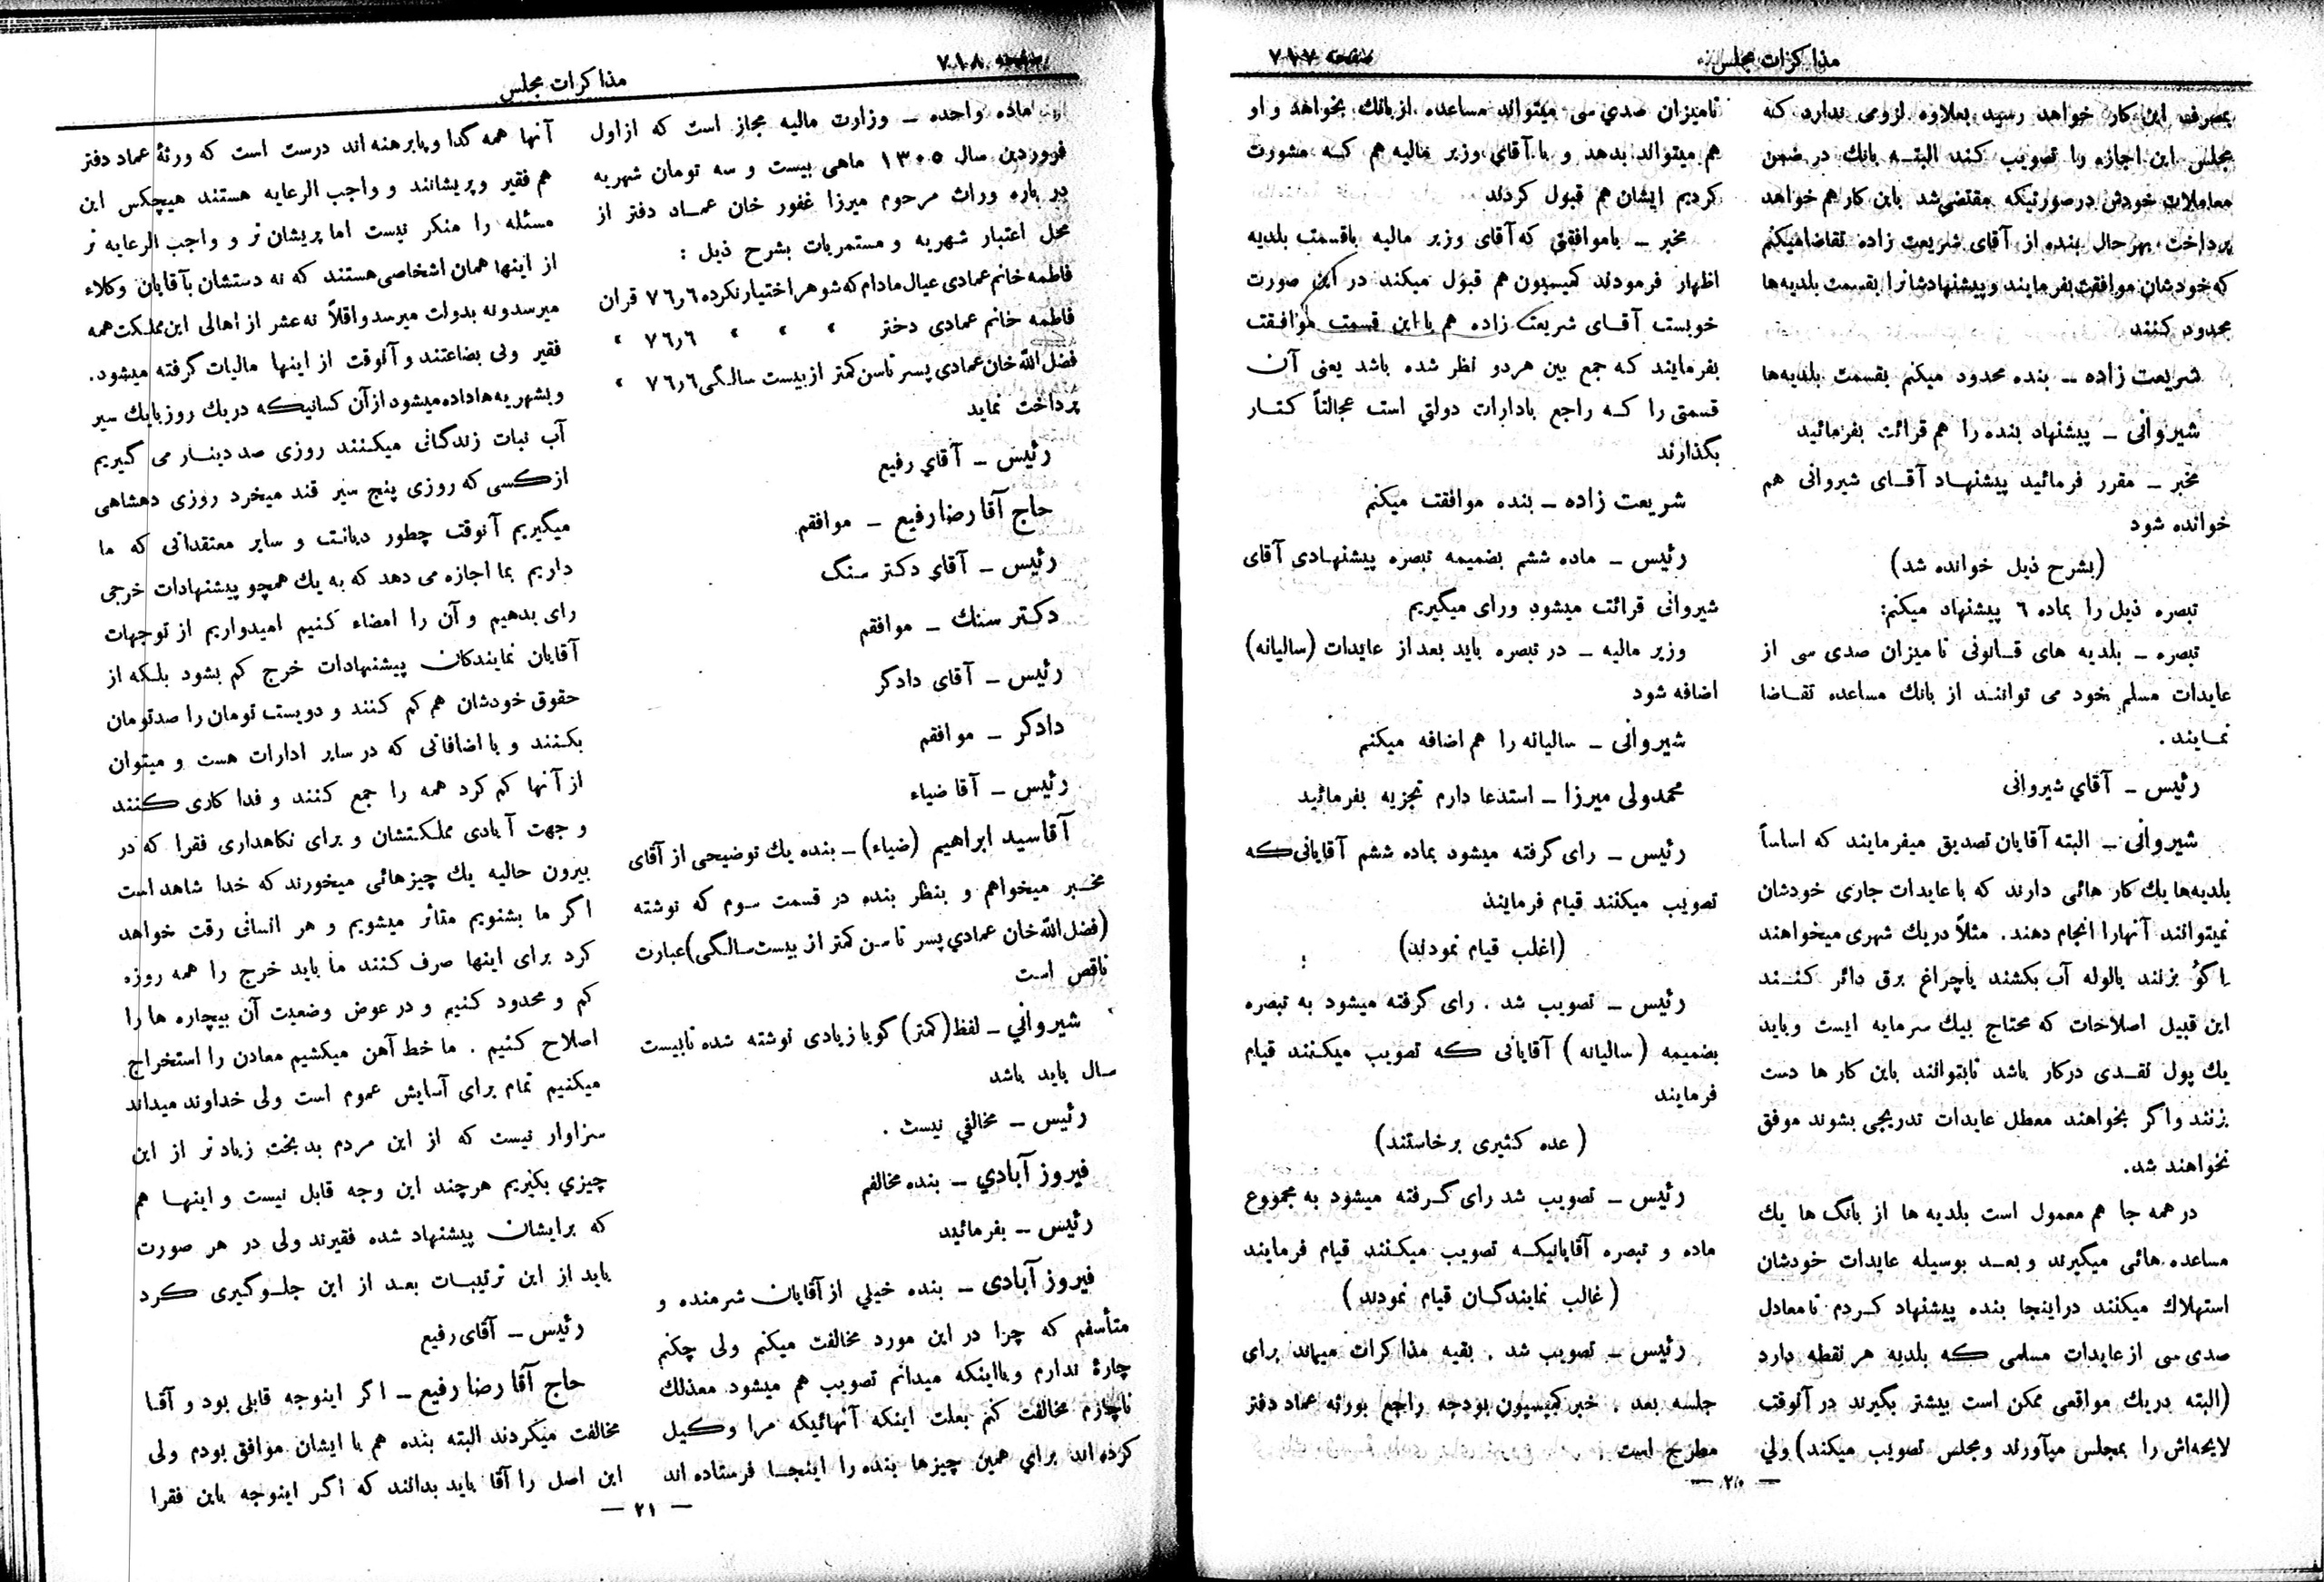 مذاکرات مجلس
صفحه ۷۱۷
بمصرف این کار خواهد رسید بعلاوه لزومی ندارد که
مجلس این اجازه را تصویب کند البته بانك در ضمن
معاملات خودش درصورتیکه مقتضی شد باین کار هم خواهد
پرداخت بهر حال بنده از آقای شریعت زاده تقاضا میکنم
که خودشان موافقت بفرمایند و پیشنهادشانرا بقسمت بلدیه‌ها
محدود کنند
شریعت زاده ــ بنده محدود میکنم بقسمت بلدیه‌ها
شیروانی ــ پیشنهاد بنده را هم قرائت بفرمائید
مخبر ــ مقرر فرمائید پیشنهاد آقای شیروانی هم
خوانده شود
(بشرح ذیل خوانده شد)
تبصره ذیل را بماده ٦ پیشنهاد میکنم:
تبصره ــ بلدیه های قانونی تا میزان صدی سی از
عایدات مسلم خود می توانند از بانك مساعده تقاضا
نمایند.
رئیس ــ آقاي شیروانی
شیروانی ــ البته آقایان تصدیق میفرمایند که اساساً
بلدیه‌ها یك کار هائی دارند که با عایدات جاری خودشان
نمیتوانند آنهارا انجام دهند. مثلاً دریك شهری میخواهند
اگو بزنند یالوله آب بکشند یاچراغ برق دائر کنند
این قبیل اصلاحات که محتاج بیك سرمایه ایست و باید
یك پول نقدی درکار باشد تابتوانند باین کار ها دست
بزنند واگر بخواهند معطل عایدات تدریجی بشوند موفق
نخواهند شد.
در همه جا هم معمول است بلدیه ها از بانگ ها یك
مساعده هائی میگیرند و بعد بوسیله عایدات خودشان
استهلاك میکنند دراینجا بنده پیشنهاد کردم تا معادل
صدی سی از عایدات مسلمی که بلدیه هر نقطه دارد
(البته دریك مواقعی ممکن است بیشتر بگیرند در آنوقت
لایحه‌اش را بمجلس میآورند ومجلس تصویب میکند) ولي
تامیزان صدي سی میتواند مساعده از بانك بخواهد و او
هم میتواند بدهد و با آقاي وزیر مالیه هم که مشورت
کردیم ایشان هم قبول کردند
مخبر ــ باموافقتی که آقای وزیر مالیه باقسمت بلدیه
اظهار فرمودند کمیسیون هم قبول میکند در این صورت
خوبست آقای شریعت زاده هم با این قسمت موافقت
بفرمایند که جمع بین هردو نظر شده باشد یعنی آن
قسمتی را که راجع بادارات دولتي است عجالتاً کنار
بگذارند
شریعت زاده ــ بنده موافقت میکنم
رئیس ــ ماده ششم بضمیمه تبصره پیشنهادی آقای
شیروانی قرائت میشود ورای میگیریم
وزیر مالیه ــ در تبصره باید بعد از عایدات (سالیانه)
اضافه شود
شیروانی ــ سالیانه را هم اضافه میکنم
محمدولی میرزا ــ استدعا دارم تجزیه بفرمائید
رئیس ــ رای گرفته میشود بماده ششم آقایانی که
تصویب میکنند قیام فرمایند
(اغلب قیام نمودند)
رئیس ــ تصویب شد. رای گرفته میشود به تبصره
بضمیمه (سالیانه) آقایانی که تصویب میکنند قیام
فرمایند
(عده کثیری برخاستند)
رئیس ــ تصویب شد رای گرفته میشود به مجموع
ماده و تبصره آقایانیکه تصویب میکنند قیام فرمایند
(غالب نمایندگان قیام نمودند)
رئیس ــ تصویب شد. بقیه مذاکرات میماند برای
جلسه بعد. خبر کمیسیون بودجه راجع بورثه عماد دفتر
مطرح است.
— ۲۰ —
صفحه ۷۱۸
مذاکرات مجلس
ماده واحده ــ وزارت مالیه مجاز است که ازاول
فروردین سال ۱۳۰۵ ماهی بیست و سه تومان شهریه
در باره وراث مرحوم میرزا غفور خان عماد دفتر از
محل اعتبار شهریه و مستمریات بشرح ذیل:
فاطمه خانم عمادی عیال مادام که شوهر اختیار نکرده ۷٦٫٦ قران
فاطمه خانم عمادی دختر » » » ۷٦٫٦ »
فضل الله خان عمادی پسر تاسن کمتر از بیست سالگی ۷٦٫٦ »
پرداخت نماید
رئیس ــ آقاي رفیع
حاج آقا رضا رفیع ــ موافقم
رئیس ــ آقاي دکتر سنگ
دکتر سنك ــ موافقم
رئیس ــ آقای دادگر
دادگر ــ موافقم
رئیس ــ آقا ضیاء
آقاسید ابراهیم (ضیاء) ــ بنده یك توضیحی از آقای
مخبر میخواهم و بنظر بنده در قسمت سوم که نوشته
(فضل الله خان عمادي پسر تا سن کمتر از بیست سالگی) عبارت
ناقص است
شیرواني ــ لفظ (کمتر) گویا زیادی نوشته شده تابیست
سال باید باشد
رئیس ــ مخالفي نیست.
فیروز آبادي ــ بنده مخالفم
رئیس ــ بفرمائید
فیروز آبادی ــ بنده خیلي از آقایان شرمنده و
متأسفم که چرا در این مورد مخالفت میکنم ولی چکنم
چارهٔ ندارم وبااینکه میدانم تصویب هم میشود معذلك
ناچارم مخالفت کنم بعلت اینکه آنهائیکه مرا وکیل
کرده اند براي همین چیزها بنده را اینجا فرستاده اند
آنها همه گدا وپابرهنه اند درست است که ورثهٔ عماد دفتر
هم فقیر و پریشانند و واجب الرعایه هستند هیچکس این
مسئله را منکر نیست اما پریشان تر و واجب الرعایه تر
از اینها همان اشخاصی هستند که نه دستشان بآقایان وکلاء
میرسد ونه بدولت میرسد واقلاً نه عشر از اهالی این مملکت همه
فقیر ولی بضاعتند و آنوقت از اینها مالیات گرفته میشود.
وبشهریه‌ها داده میشود از آن کسانیکه دریك روز بایك سیر
آب نبات زندگانی میکنند روزی صد دینار می گیریم
از کسی که روزی پنج سیر قند میخرد روزی دهشاهی
میگیریم آنوقت چطور دیانت و سایر معتقداتی که ما
داریم بما اجازه می دهد که به یك همچو پیشنهادات خرجی
رای بدهیم و آن را امضاء کنیم امیدواریم از توجهات
آقایان نمایندگان پیشنهادات خرج کم بشود بلکه از
حقوق خودشان هم کم کنند و دویست تومان را صدتومان
بکنند و با اضافاتی که در سایر ادارات هست و میتوان
از آنها کم کرد همه را جمع کنند و فدا کاری کنند
و جهت آبادی مملکتشان و برای نگاهداری فقرا که در
بیرون حالیه یك چیزهائی میخورند که خدا شاهد است
اگر ما بشنویم متأثر میشویم و هر انسانی رقت خواهد
کرد برای اینها صرف کنند ما باید خرج را همه روزه
کم و محدود کنیم و در عوض وضعیت آن بیچاره ها را
اصلاح کنیم. ما خط آهن میکشیم معادن را استخراج
میکنیم تمام برای آسایش عموم است ولی خداوند میداند
سزاوار نیست که از این مردم بدبخت زیاد تر از این
چیزي بگیریم هرچند این وجه قابل نیست و اینها هم
که برایشان پیشنهاد شده فقیرند ولی در هر صورت
باید از این ترتیبات بعد از این جلوگیری کرد
رئیس ــ آقای رفیع
حاج آقا رضا رفیع ــ اگر اینوجه قابلی بود و آقا
مخالفت میکردند البته بنده هم با ایشان موافق بودم ولی
این اصل را آقا باید بدانند که اگر اینوجه باین فقرا
— ۲۱ —